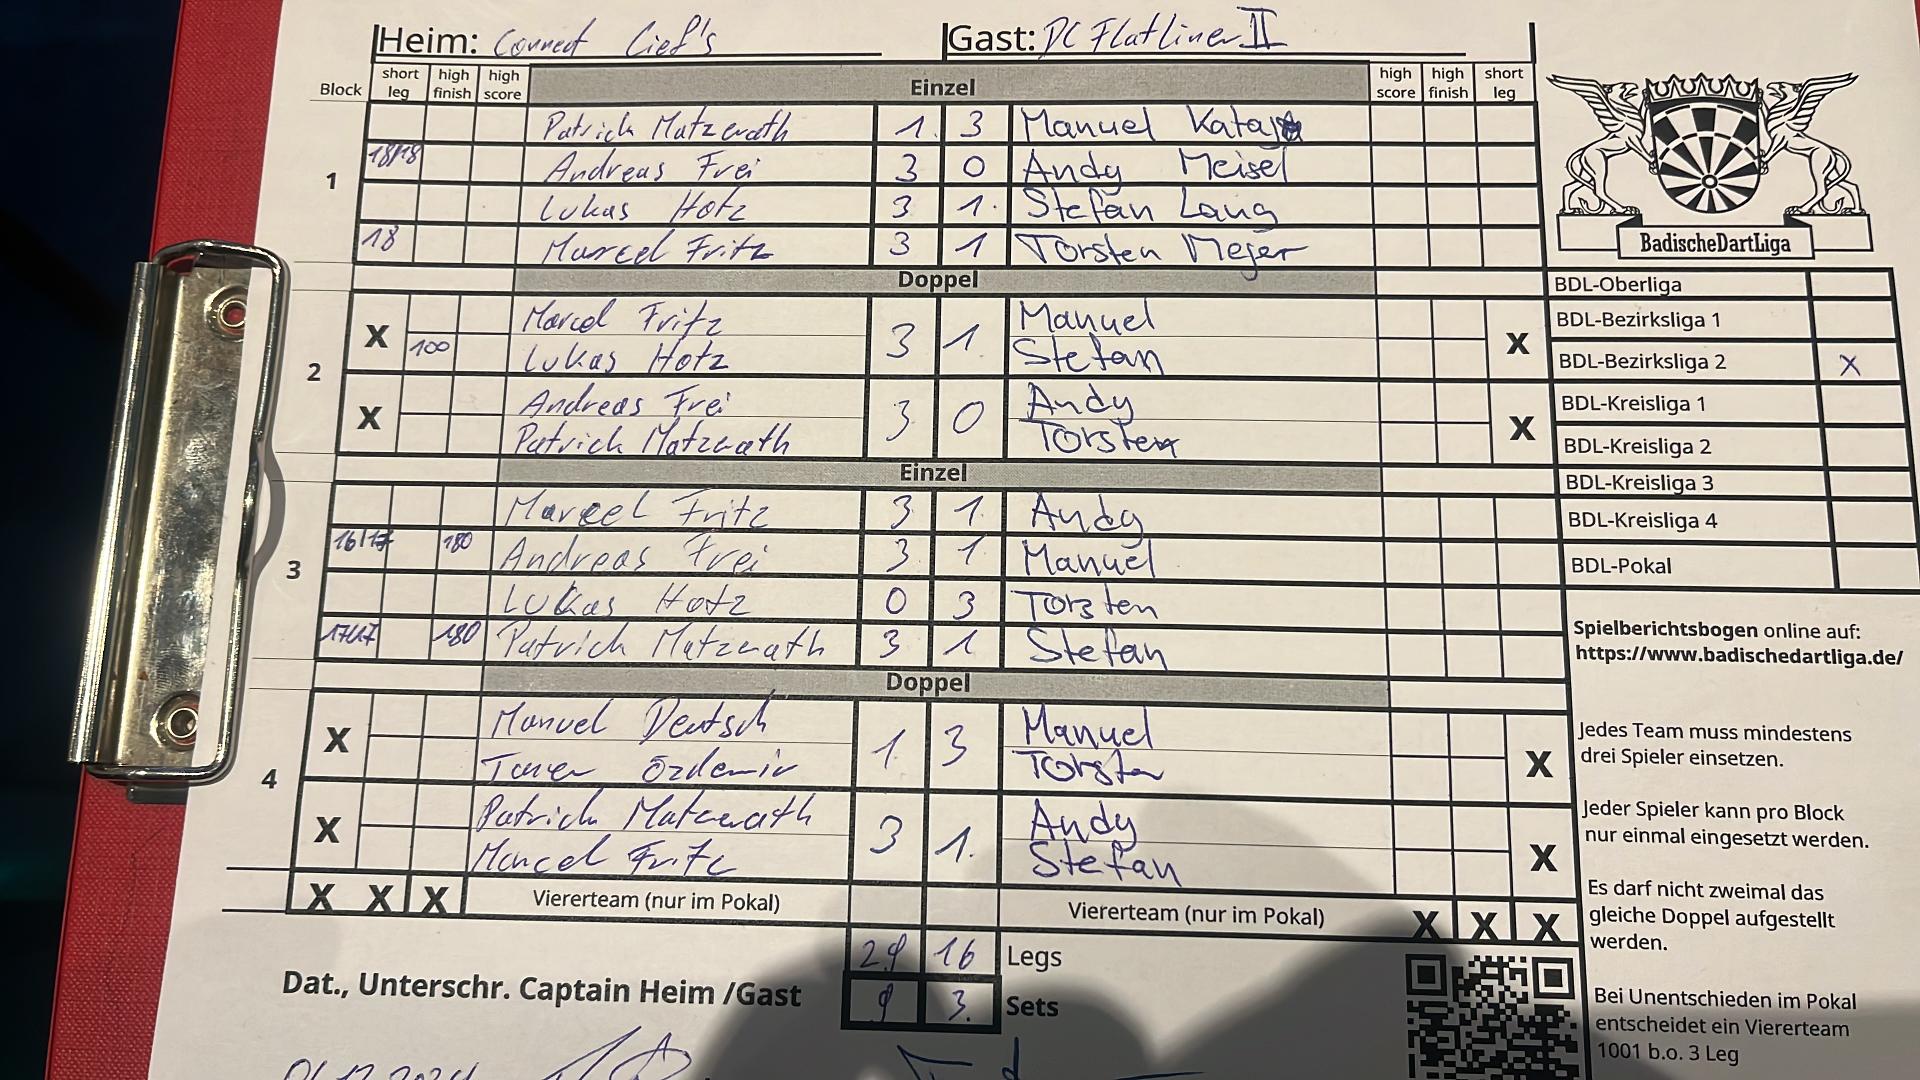 Heim: Connect Cief's Gast: DC Flatliner II
Block short leg high finish high score Einzel high score high finish short leg
1
Patrick Matzerath 1 3 Manuel
18/18 Andreas Frei 3 0 Andy Meisel
Lukas Hotz 3 1 Stefan Lang
18 Marcel Fritz 3 1 Torsten Meger
Doppel
2
X Marcel Fritz 3 1 Manuel X
100 Lukas Hotz Stefan
X Andreas Frei 3 0 Andy X
Patrick Matzerath Torsten
Einzel
3
Marcel Fritz 3 1 Andy
16/17 180 Andreas Frei 3 1 Manuel
Lukas Hotz 0 3 Torsten
17/17 180 Patrick Matzerath 3 1 Stefan
Doppel
4
X Manuel Deutsch 1 3 Manuel X
Özdemir Torsten
X Patrick Matzerath 3 1 Andy X
Marcel Fritz Stefan
X X X Viererteam (nur im Pokal) Viererteam (nur im Pokal) X X X
29 16 Legs
9 3 Sets
Dat., Unterschr. Captain Heim /Gast
BadischeDartLiga
BDL-Oberliga
BDL-Bezirksliga 1
BDL-Bezirksliga 2 X
BDL-Kreisliga 1
BDL-Kreisliga 2
BDL-Kreisliga 3
BDL-Kreisliga 4
BDL-Pokal
Spielberichtsbogen online auf:
https://www.badischedartliga.de/
Jedes Team muss mindestens
drei Spieler einsetzen.
Jeder Spieler kann pro Block
nur einmal eingesetzt werden.
Es darf nicht zweimal das
gleiche Doppel aufgestellt
werden.
Bei Unentschieden im Pokal
entscheidet ein Viererteam
1001 b.o. 3 Leg